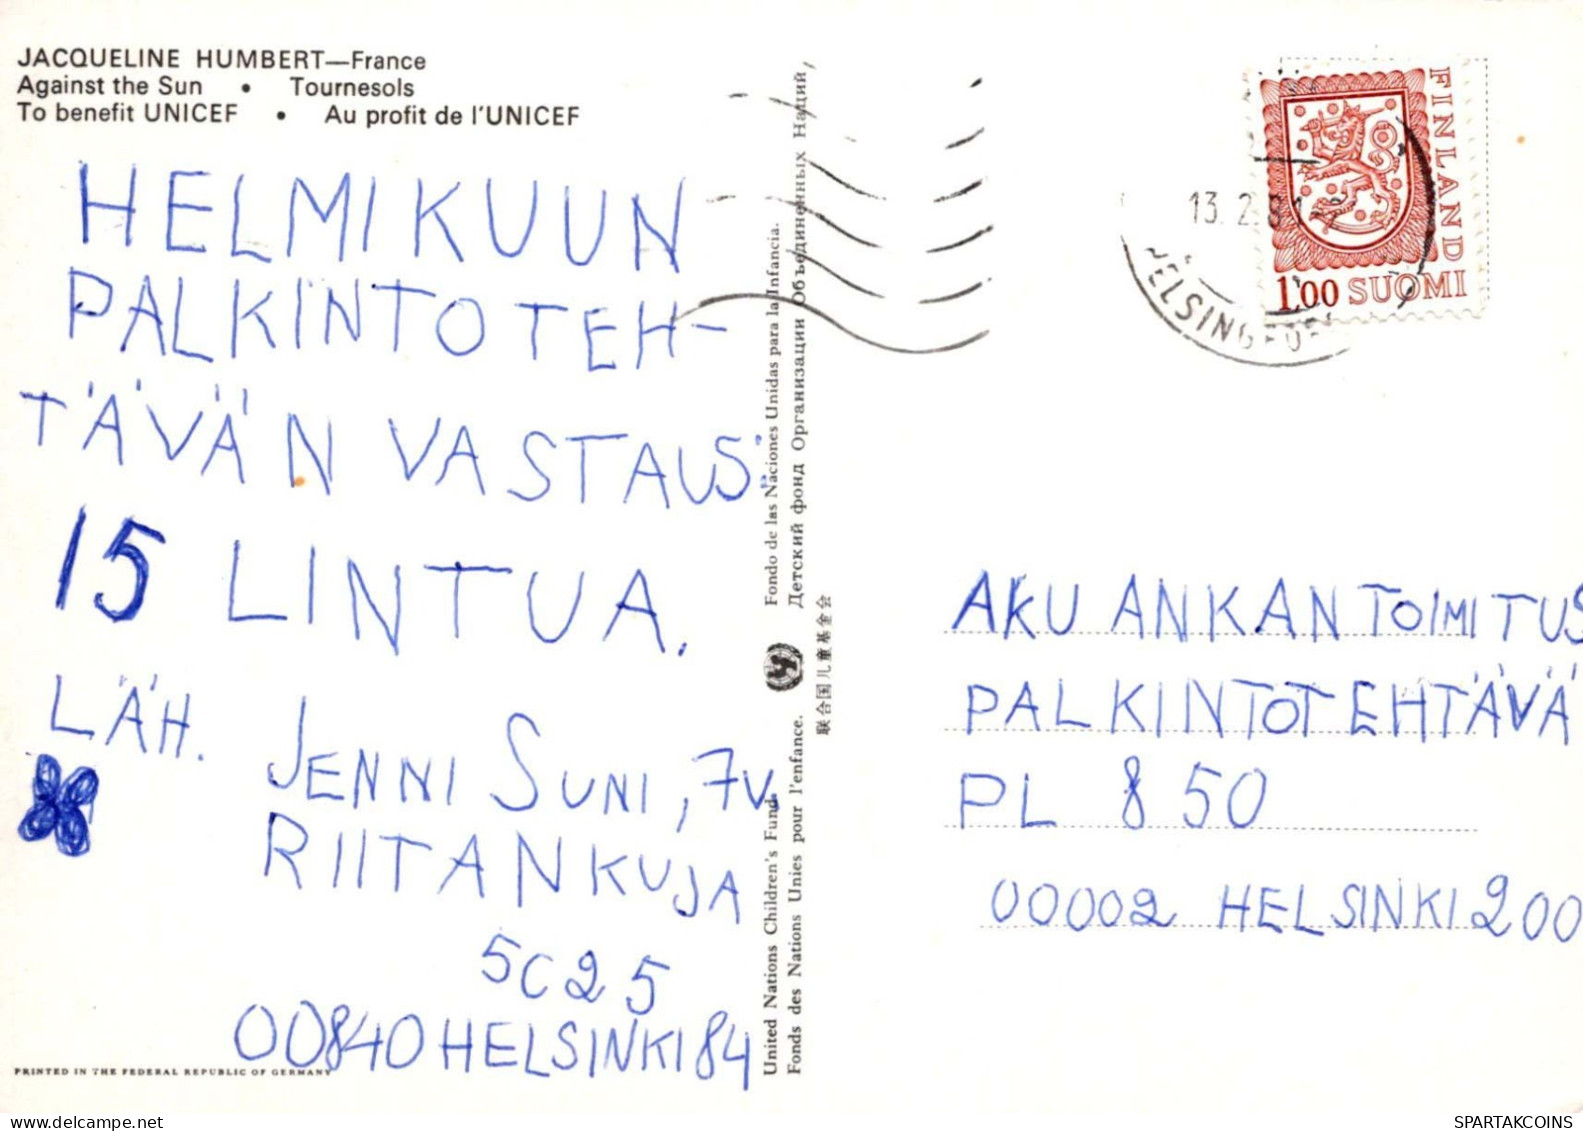 JACQUELINE HUMBERT—France
Against the Sun • Tournesols
To benefit UNICEF • Au profit de l'UNICEF
HELMIKUUN
PALKINTOTEH-
TÄVÄN VASTAUS:
15 LINTUA.
LÄH.
JENNI SUNI, 7v.
RIITANKUJA
5C25
00840 HELSINKI 84
PRINTED IN THE FEDERAL REPUBLIC OF GERMANY
United Nations Children's Fund. Fondo de las Naciones Unidas para la Infancia.
Fonds des Nations Unies pour l'enfance. Детский фонд Организации Объединенных Наций,
联合国儿童基金会
13.2.81
HELSINGFORS
FINLAND
1,00 SUOMI
AKU ANKAN TOIMITUS
PALKINTOTEHTÄVÄ
PL 850
00002 HELSINKI 200
SPARTAKCOINS